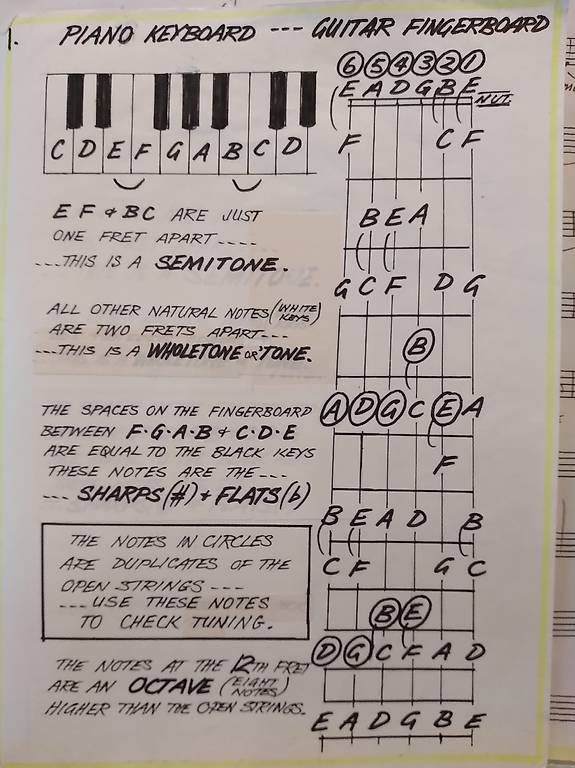 1. PIANO KEYBOARD --- GUITAR FINGERBOARD
6 5 4 3 2 1
E A D G B E
NUT
F C F
C D E F G A B C D
E F & B C ARE JUST
ONE FRET APART----
----THIS IS A SEMITONE.
B E A
G C F D G
ALL OTHER NATURAL NOTES (WHITE KEYS)
ARE TWO FRETS APART---
---THIS IS A WHOLETONE OR 'TONE.
B
A D G C E A
THE SPACES ON THE FINGERBOARD
BETWEEN F·G·A·B & C·D·E
ARE EQUAL TO THE BLACK KEYS
THESE NOTES ARE THE ---
--- SHARPS (#) & FLATS (b)
F
B E A D B
C F G C
THE NOTES IN CIRCLES
ARE DUPLICATES OF THE
OPEN STRINGS ----
----USE THESE NOTES
TO CHECK TUNING.
B E
D G C F A D
THE NOTES AT THE 12TH FRET
ARE AN OCTAVE (EIGHT NOTES)
HIGHER THAN THE OPEN STRINGS.
E A D G B E